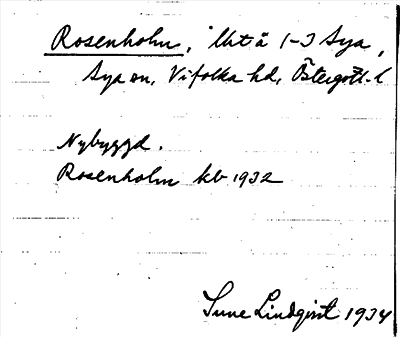 Rosenholm, Urt å 1-3 Sya,
Sya sn, Vifolka hd, Östergötl. l
Nybyggd.
Rosenholm kb 1932
Sune Lindqvist 1934